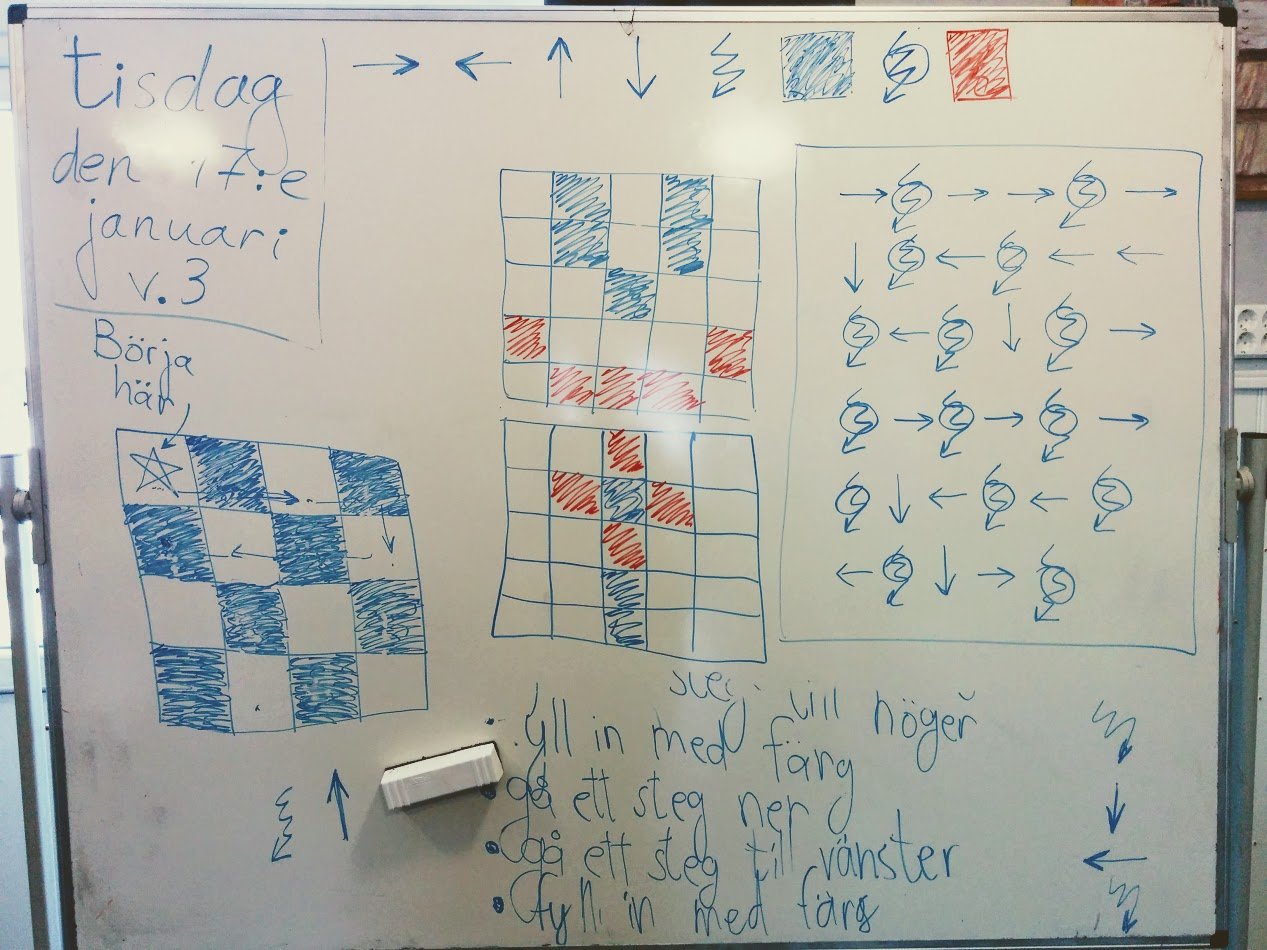 tisdag
den 17:e
januari
v.3
Börja
här
steg till höger
fyll in med färg
gå ett steg ner
gå ett steg till vänster
fyll in med färg